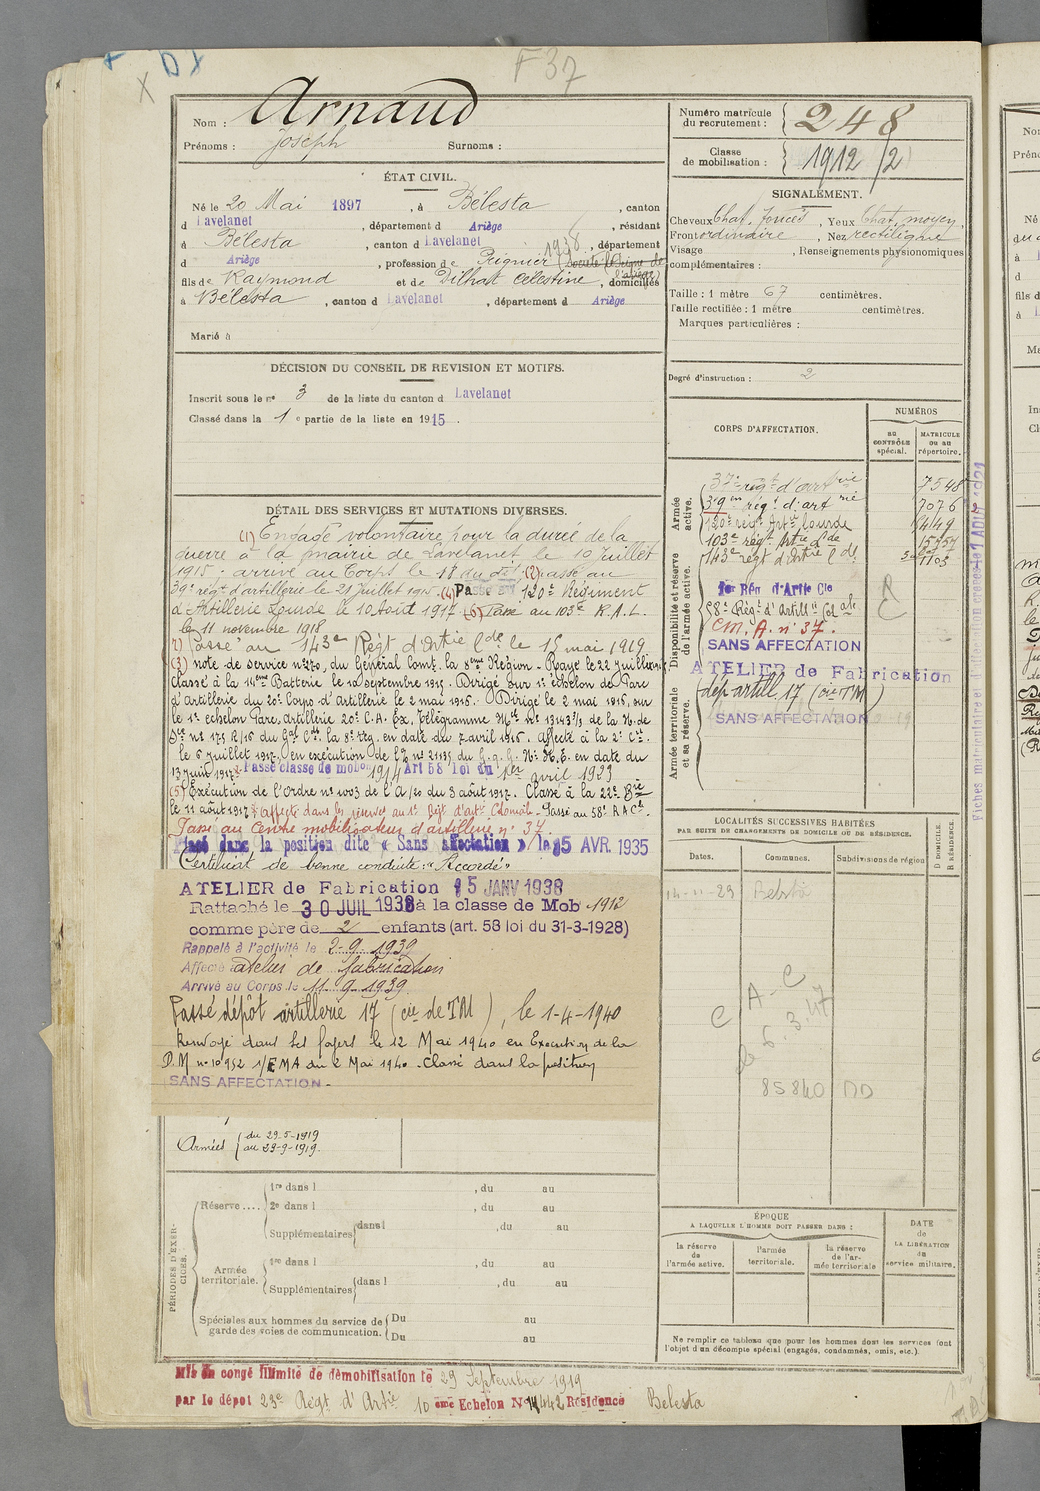 F 37
Nom : Arnaud
Prénoms : Joseph Surnoms :
Numéro matricule du recrutement : 248
Classe de mobilisation : 1912/2
ÉTAT CIVIL.
Né le 20 Mai 1897, à Bélesta, canton
d Lavelanet, département d Ariège, résidant
à Bélesta, canton d Lavelanet 1938, département
d Ariège, profession de Peignier
fils de Raymond et de Dilhat Célestine, domiciliés
à Bélesta, canton d Lavelanet, département d Ariège
Marié à
SIGNALEMENT.
Cheveux Chat. foncés, Yeux Chat. moyen,
Front ordinaire, Nez rectiligne
Visage , Renseignements physionomiques
complémentaires :
Taille : 1 mètre 67 centimètres.
Taille rectifiée : 1 mètre centimètres.
Marques particulières :
Degré d'instruction : 2
DÉCISION DU CONSEIL DE REVISION ET MOTIFS.
Inscrit sous le n° 3 de la liste du canton d Lavelanet
Classé dans la 1e partie de la liste en 1915.
CORPS D'AFFECTATION.
NUMÉROS
AU CONTRÔLE spécial.
MATRICULE OU AU répertoire.
Armée active.
37e régt d'artrie 7548
39me régt d'artrie 7076
120e régt Artie lourde 4449
103e régt Artie lde 15757
143e régt d'Artie lde 1103
Disponibilité et réserve de l'armée active.
1er Rég d'Artie Cle
58e Régt d'Artillie Colale
C.M.A. n° 37.
SANS AFFECTATION
ATELIER de Fabrication
Armée territoriale et sa réserve.
dép artill 17 (cie TM)
SANS AFFECTATION
DÉTAIL DES SERVICES ET MUTATIONS DIVERSES.
(1) Engagé volontaire pour la durée de la
guerre à la mairie de Lavelanet le 10 juillet
1915. arrivé au Corps le 18 du dit. (2) Passé au
39e régt d'artillerie le 21 juillet 1915. (4) Passé au 120e Régiment
d'Artillerie Lourde le 10 août 1917. (6) Passé au 103e R.A.L.
le 11 novembre 1918
7) Passé au 143e Régt d'Artie lde le 15 mai 1919
(3) note de service n° 270, du Général Comt. la 8ème Région - Rayé le 22 juillet
Classé à la 14ème Batterie le 10 septembre 1915. Dirigé sur 1e échelon de Parc
d'artillerie du 20e Corps d'Artillerie le 2 mai 1916. Dirigé le 2 mai 1916, sur
le 1e échelon Parc, Artillerie 20e C.A. Ex. Télégramme
Affecté à la 2e Cie.
le 6 juillet 1917, en exécution de en date du
13 juin 1917. Passé classe de mob 1914 Art 58 loi du 1er avril 1923
(5) Exécution de l'Ordre n° 1003 de l'A/20 du 3 août 1917. Classé à la 22e Bie
le 11 août 1917. Affecté dans les réserves au 1e Régt d'artie Coloniale. Passé au 58e R A C.
Passé au Centre mobilisateur d'artillerie n° 37.
Placé dans la position dite « Sans affectation » le 15 AVR. 1935
Certificat de bonne conduite : "Accordé"
ATELIER de Fabrication 15 JANV 1938
Rattaché le 30 JUIL 1938 à la classe de Mob 1912
comme père de 2 enfants (art. 58 loi du 31-3-1928)
Rappelé à l'activité le 2-9-1939
Affecté atelier de fabrication
Arrivé au Corps le 11-9-1939
Passé dépôt artillerie 17 (cie de TM), le 1-4-1940
Renvoyé dans ses foyers le 12 Mai 1940 en Exécution de la
D.M n° 10952 1/EMA du 2 Mai 1940. Classé dans la position
SANS AFFECTATION -
Armées { du 29-5-1919
au 29-9-1919.
LOCALITÉS SUCCESSIVES HABITÉES
PAR SUITE DE CHANGEMENTS DE DOMICILE OU DE RÉSIDENCE.
Dates. Communes. Subdivisions de région D DOMICILE. R RÉSIDENCE.
14-11-29 Belesta
C A - C
le 6.3.47
85840 DD
PÉRIODES D'EXERCICES.
Réserve .... 1re dans l , du au
2e dans l , du au
Supplémentaires dans l , du au
Armée territoriale. 1re dans l , du au
Supplémentaires dans l , du au
Spéciales aux hommes du service de garde des voies de communication. Du au
Du au
ÉPOQUE
A LAQUELLE L'HOMME DOIT PASSER DANS :
la réserve de l'armée active.
l'armée territoriale.
la réserve de l'armée territoriale
DATE de LA LIBÉRATION du service militaire.
Ne remplir ce tableau que pour les hommes dont les services font
l'objet d'un décompte spécial (engagés, condamnés, omis, etc.).
Mis en congé illimité de démobilisation le 29 Septembre 1919
par le dépôt 23e Régt d'Artie 10 ème Echelon N° 1442 Résidence Belesta